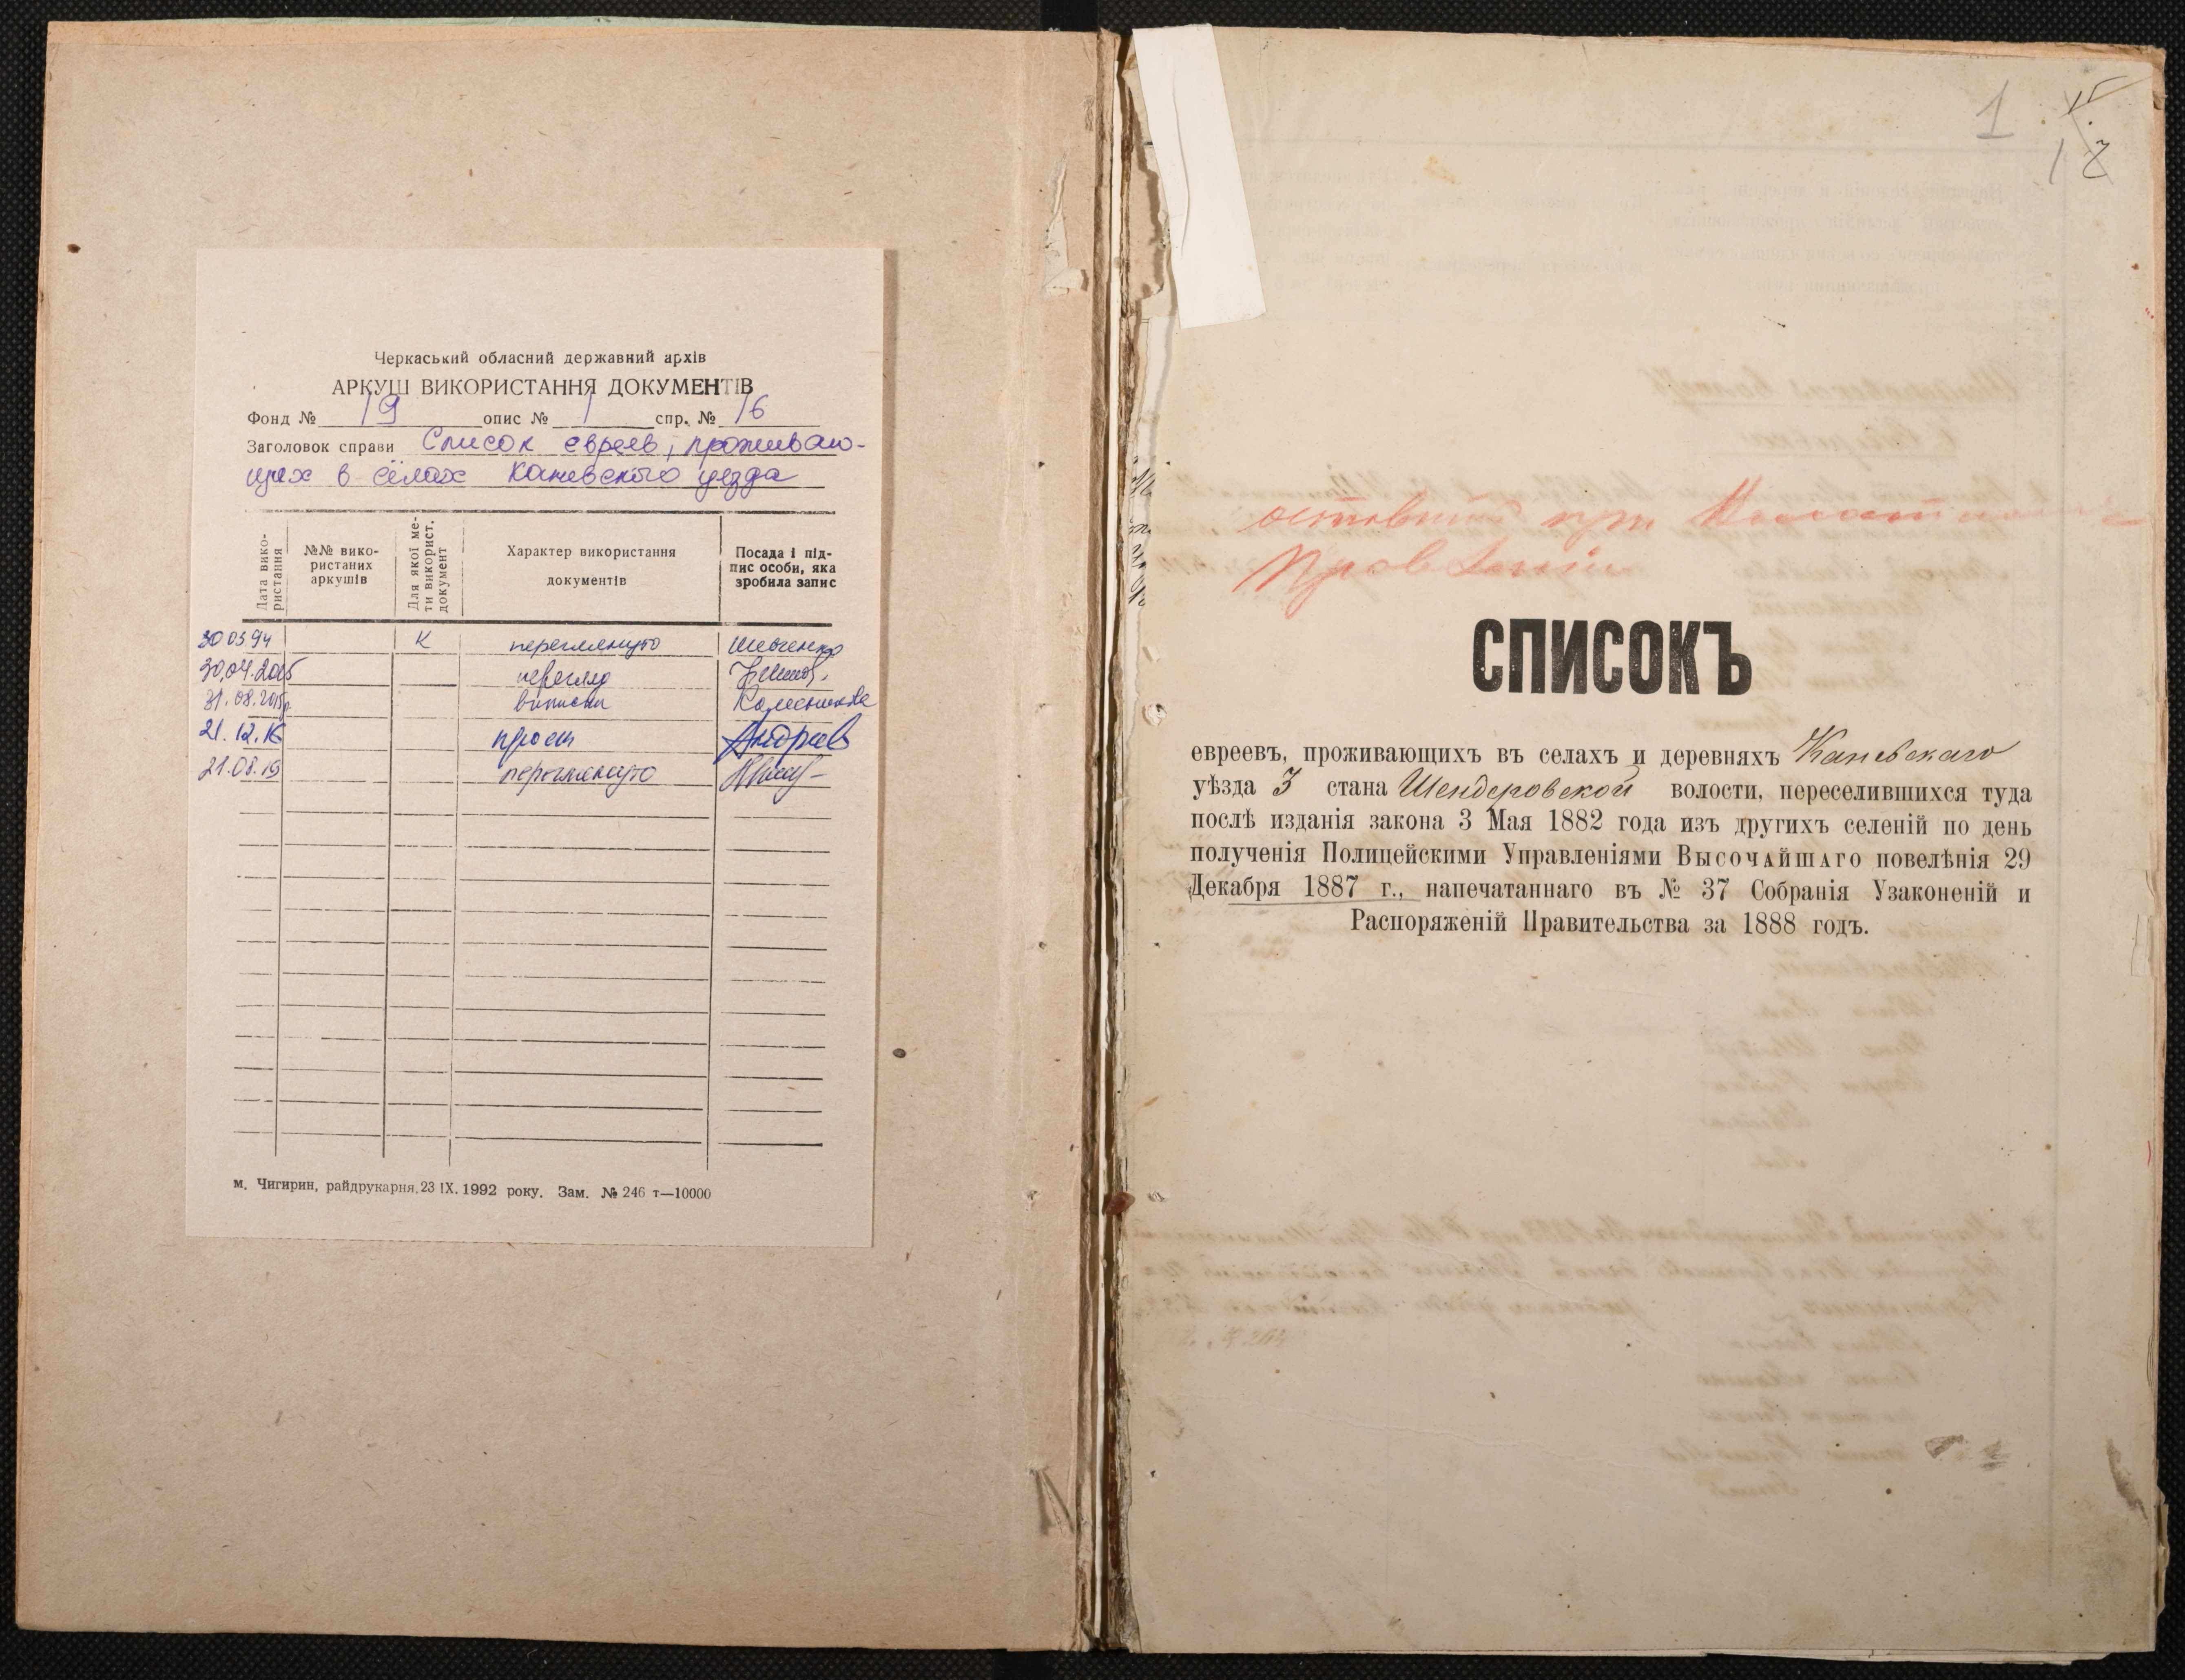 Черкаський обласний державний архів
АРКУШ ВИКОРИСТАННЯ ДОКУМЕНТІВ
Фонд № 19 опис № 1 спр. № 16
Заголовок справи Список евреев, проживаю-
щих в сёлах Каневского уезда
Дата вико-
ристання
№№ вико-
ристаних
аркушів
Для якої ме-
ти використ.
документ
Характер використання
документів
Посада і під-
пис особи, яка
зробила запис
30 03 94 К переглянуто Шевченко
30.04.2015 перегляд
31.08.2015р виписки
21.12.16 Андреев
21.08.19 переглянуто
м. Чигирин, райдрукарня, 23 IX. 1992 року. Зам. № 246 т—10000
1
при
СПИСОКЪ
евреевъ, проживающихъ въ селахъ и деревняхъ Каневскаго
уѣзда 3 стана Шендеровской волости, переселившихся туда
послѣ изданія закона 3 Мая 1882 года изъ другихъ селеній по день
полученія Полицейскими Управленіями Высочайшаго повелѣнія 29
Декабря 1887 г., напечатаннаго въ № 37 Собранія Узаконеній и
Распоряженій Правительства за 1888 годъ.